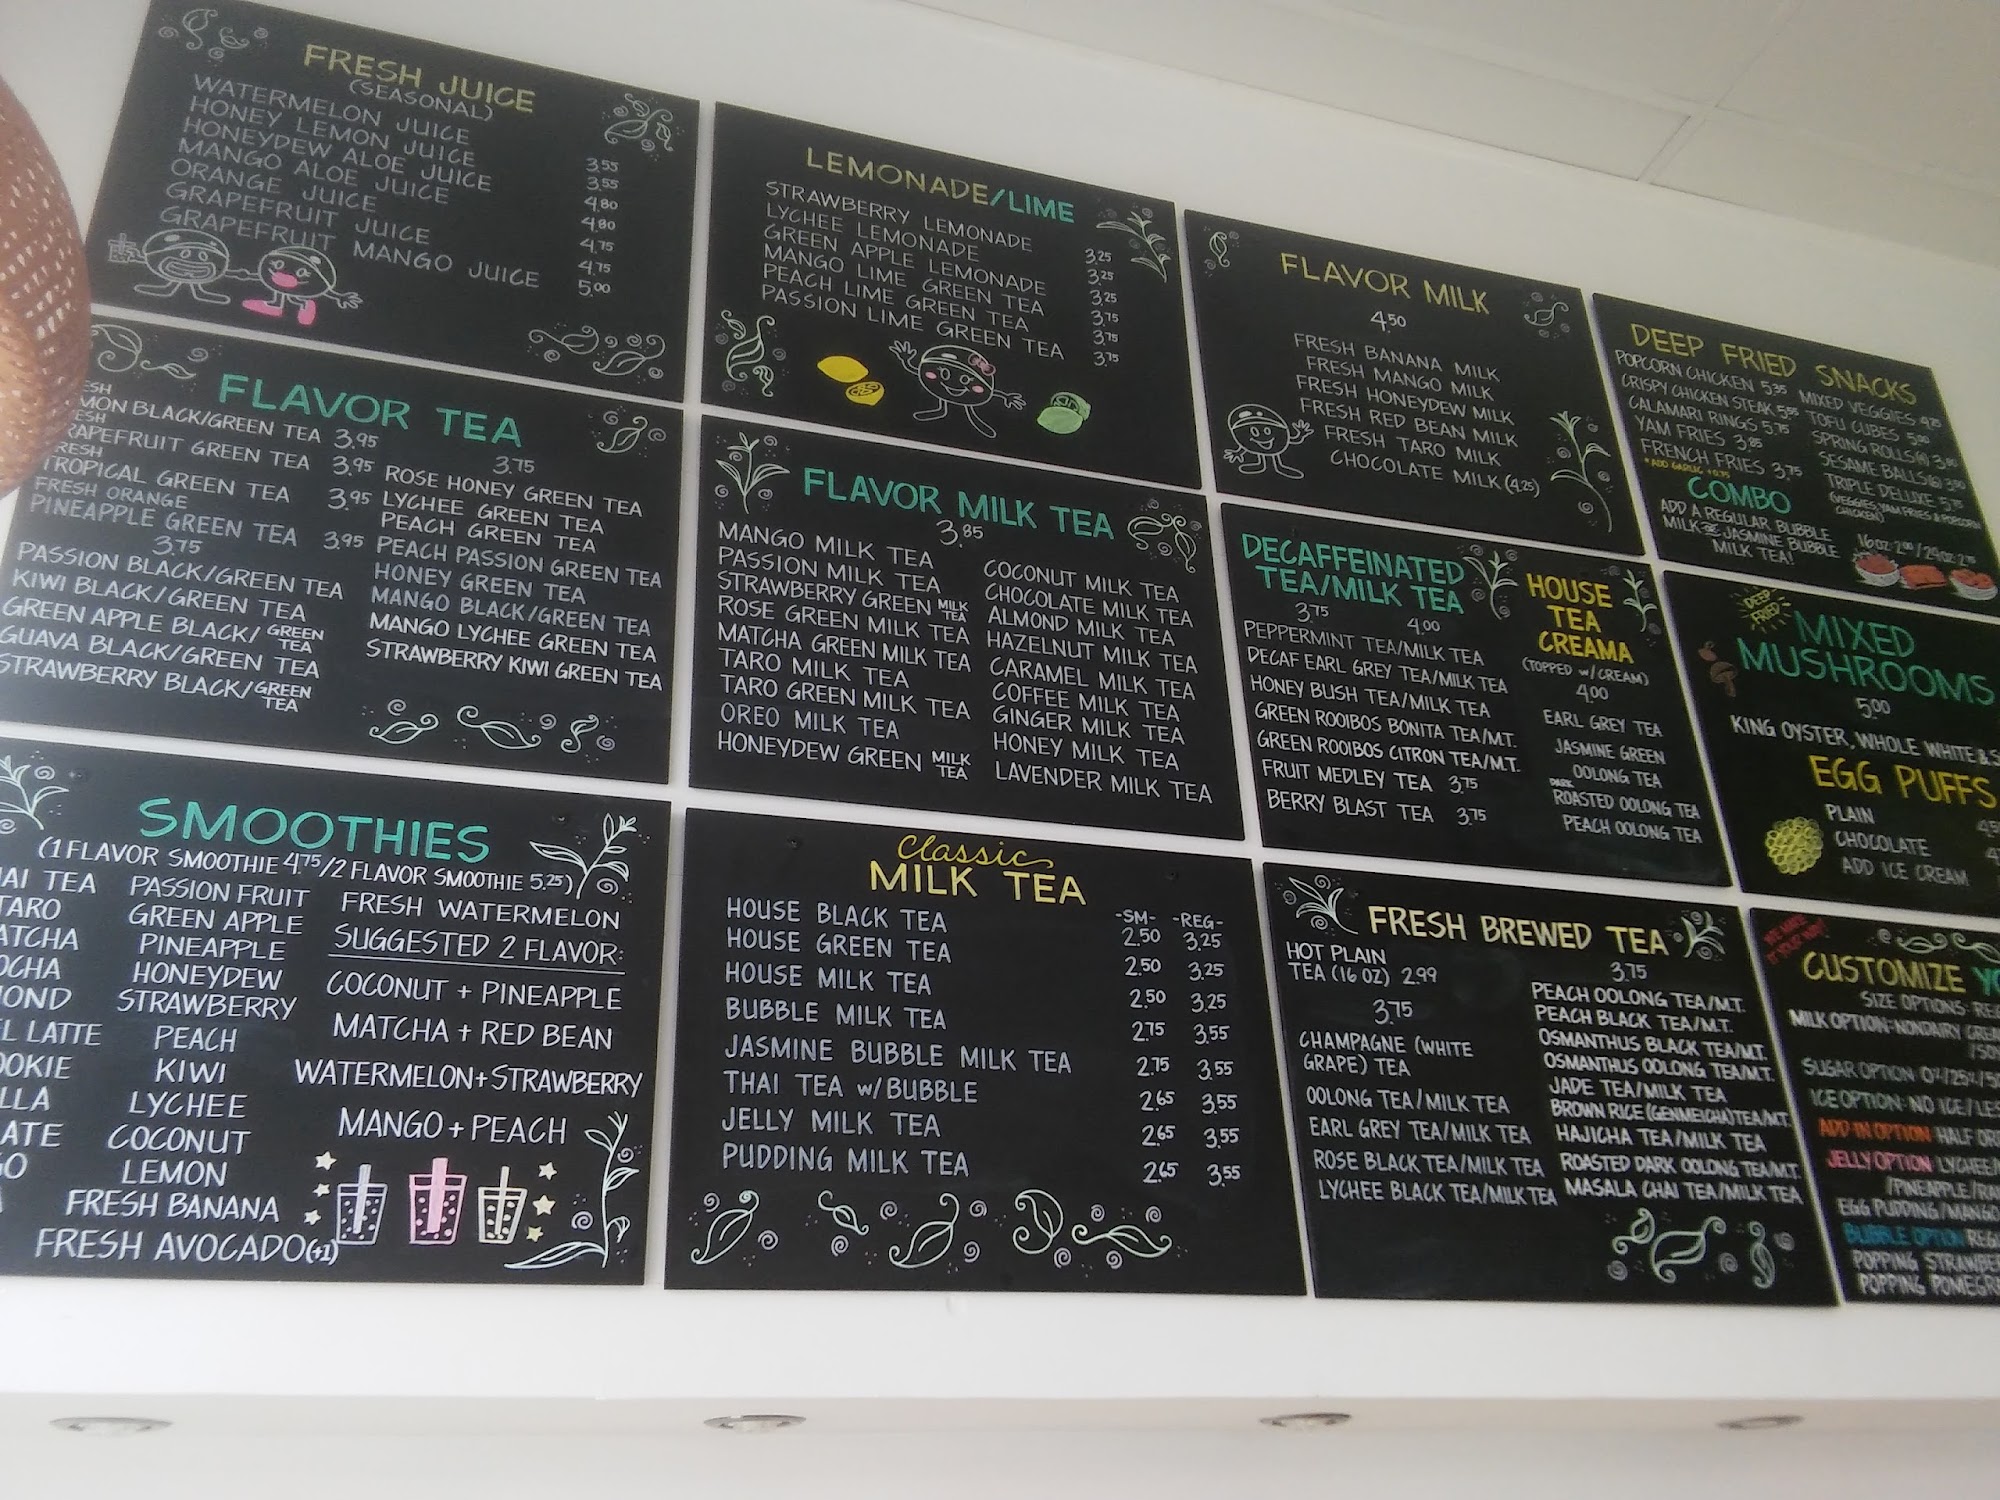 FRESH JUICE
(SEASONAL)
WATERMELON JUICE 3.55
HONEY LEMON JUICE 3.55
HONEYDEW ALOE JUICE 4.80
MANGO ALOE JUICE 4.80
ORANGE JUICE 4.75
GRAPEFRUIT JUICE 4.75
GRAPEFRUIT MANGO JUICE 5.00
LEMONADE/LIME
STRAWBERRY LEMONADE 3.25
LYCHEE LEMONADE 3.25
GREEN APPLE LEMONADE 3.25
MANGO LIME GREEN TEA 3.75
PEACH LIME GREEN TEA 3.75
PASSION LIME GREEN TEA 3.75
FLAVOR MILK
4.50
FRESH BANANA MILK
FRESH MANGO MILK
FRESH HONEYDEW MILK
FRESH RED BEAN MILK
FRESH TARO MILK
CHOCOLATE MILK (4.25)
DEEP FRIED SNACKS
POPCORN CHICKEN 5.35
CRISPY CHICKEN STEAK 5.55
CALAMARI RINGS 5.75
YAM FRIES 3.85
FRENCH FRIES 3.75
*ADD GARLIC +0.75
MIXED VEGGIES 4.75
TOFU CUBES 5.00
SPRING ROLLS
SESAME BALLS
TRIPLE DELUXE 5.75
(VEGGIES, YAM FRIES & POPCORN
CHICKEN)
COMBO
ADD A REGULAR BUBBLE
MILK OR JASMINE BUBBLE
MILK TEA!
16 OZ
FLAVOR TEA
FRESH
LEMON BLACK/GREEN TEA 3.95
FRESH
GRAPEFRUIT GREEN TEA 3.95
FRESH
TROPICAL GREEN TEA 3.95
FRESH ORANGE
PINEAPPLE GREEN TEA 3.95
3.75
PASSION BLACK/GREEN TEA
KIWI BLACK/GREEN TEA
GREEN APPLE BLACK/GREEN TEA
GUAVA BLACK/GREEN TEA
STRAWBERRY BLACK/GREEN TEA
3.75
ROSE HONEY GREEN TEA
LYCHEE GREEN TEA
PEACH GREEN TEA
PEACH PASSION GREEN TEA
HONEY GREEN TEA
MANGO BLACK/GREEN TEA
MANGO LYCHEE GREEN TEA
STRAWBERRY KIWI GREEN TEA
FLAVOR MILK TEA
3.85
MANGO MILK TEA
PASSION MILK TEA
STRAWBERRY GREEN MILK TEA
ROSE GREEN MILK TEA
MATCHA GREEN MILK TEA
TARO MILK TEA
TARO GREEN MILK TEA
OREO MILK TEA
HONEYDEW GREEN MILK TEA
COCONUT MILK TEA
CHOCOLATE MILK TEA
ALMOND MILK TEA
HAZELNUT MILK TEA
CARAMEL MILK TEA
COFFEE MILK TEA
GINGER MILK TEA
HONEY MILK TEA
LAVENDER MILK TEA
DECAFFEINATED
TEA/MILK TEA
3.75 4.00
PEPPERMINT TEA/MILK TEA
DECAF EARL GREY TEA/MILK TEA
HONEY BUSH TEA/MILK TEA
GREEN ROOIBOS BONITA TEA/M.T.
GREEN ROOIBOS CITRON TEA/M.T.
FRUIT MEDLEY TEA 3.75
BERRY BLAST TEA 3.75
HOUSE
TEA
CREAMA
(TOPPED w/CREAM)
4.00
EARL GREY TEA
JASMINE GREEN
OOLONG TEA
DARK
ROASTED OOLONG TEA
PEACH OOLONG TEA
DEEP FRIED
MIXED
MUSHROOMS
5.00
KING OYSTER, WHOLE WHITE &
EGG PUFFS
PLAIN
CHOCOLATE
ADD ICE CREAM
SMOOTHIES
(1 FLAVOR SMOOTHIE 4.75/2 FLAVOR SMOOTHIE 5.25)
AI TEA
TARO
ATCHA
OCHA
MOND
EL LATTE
OOKIE
LLA
ATE
GO
A
PASSION FRUIT
GREEN APPLE
PINEAPPLE
HONEYDEW
STRAWBERRY
PEACH
KIWI
LYCHEE
COCONUT
LEMON
FRESH BANANA
FRESH AVOCADO(+1)
FRESH WATERMELON
SUGGESTED 2 FLAVOR:
COCONUT + PINEAPPLE
MATCHA + RED BEAN
WATERMELON+STRAWBERRY
MANGO + PEACH
Classic
MILK TEA
-SM- -REG-
HOUSE BLACK TEA 2.50 3.25
HOUSE GREEN TEA 2.50 3.25
HOUSE MILK TEA 2.50 3.25
BUBBLE MILK TEA 2.75 3.55
JASMINE BUBBLE MILK TEA 2.75 3.55
THAI TEA w/BUBBLE 2.65 3.55
JELLY MILK TEA 2.65 3.55
PUDDING MILK TEA 2.65 3.55
FRESH BREWED TEA
HOT PLAIN
TEA (16 OZ) 2.99
3.75
CHAMPAGNE (WHITE
GRAPE) TEA
OOLONG TEA/MILK TEA
EARL GREY TEA/MILK TEA
ROSE BLACK TEA/MILK TEA
LYCHEE BLACK TEA/MILK TEA
3.75
PEACH OOLONG TEA/M.T.
PEACH BLACK TEA/M.T.
OSMANTHUS BLACK TEA/M.T.
OSMANTHUS OOLONG TEA/M.T.
JADE TEA/MILK TEA
BROWN RICE (GENMEICHA) TEA/M.T.
HAJICHA TEA/MILK TEA
ROASTED DARK OOLONG TEA/M.T.
MASALA CHAI TEA/MILK TEA
WE MAKE
IT YOUR WAY!
CUSTOMIZE YO
SIZE OPTIONS: RE
MILK OPTION-NONDAIRY CREA
/SOY
SUGAR OPTION 0%/25%/5
ICE OPTION: NO ICE/LES
ADD-IN OPTION: HALF OR
JELLY OPTION: LYCHEE/
/PINEAPPLE/RA
EGG PUDDING/MANGO
BUBBLE OPTION REG
POPPING STRAWBE
POPPING POMEGR